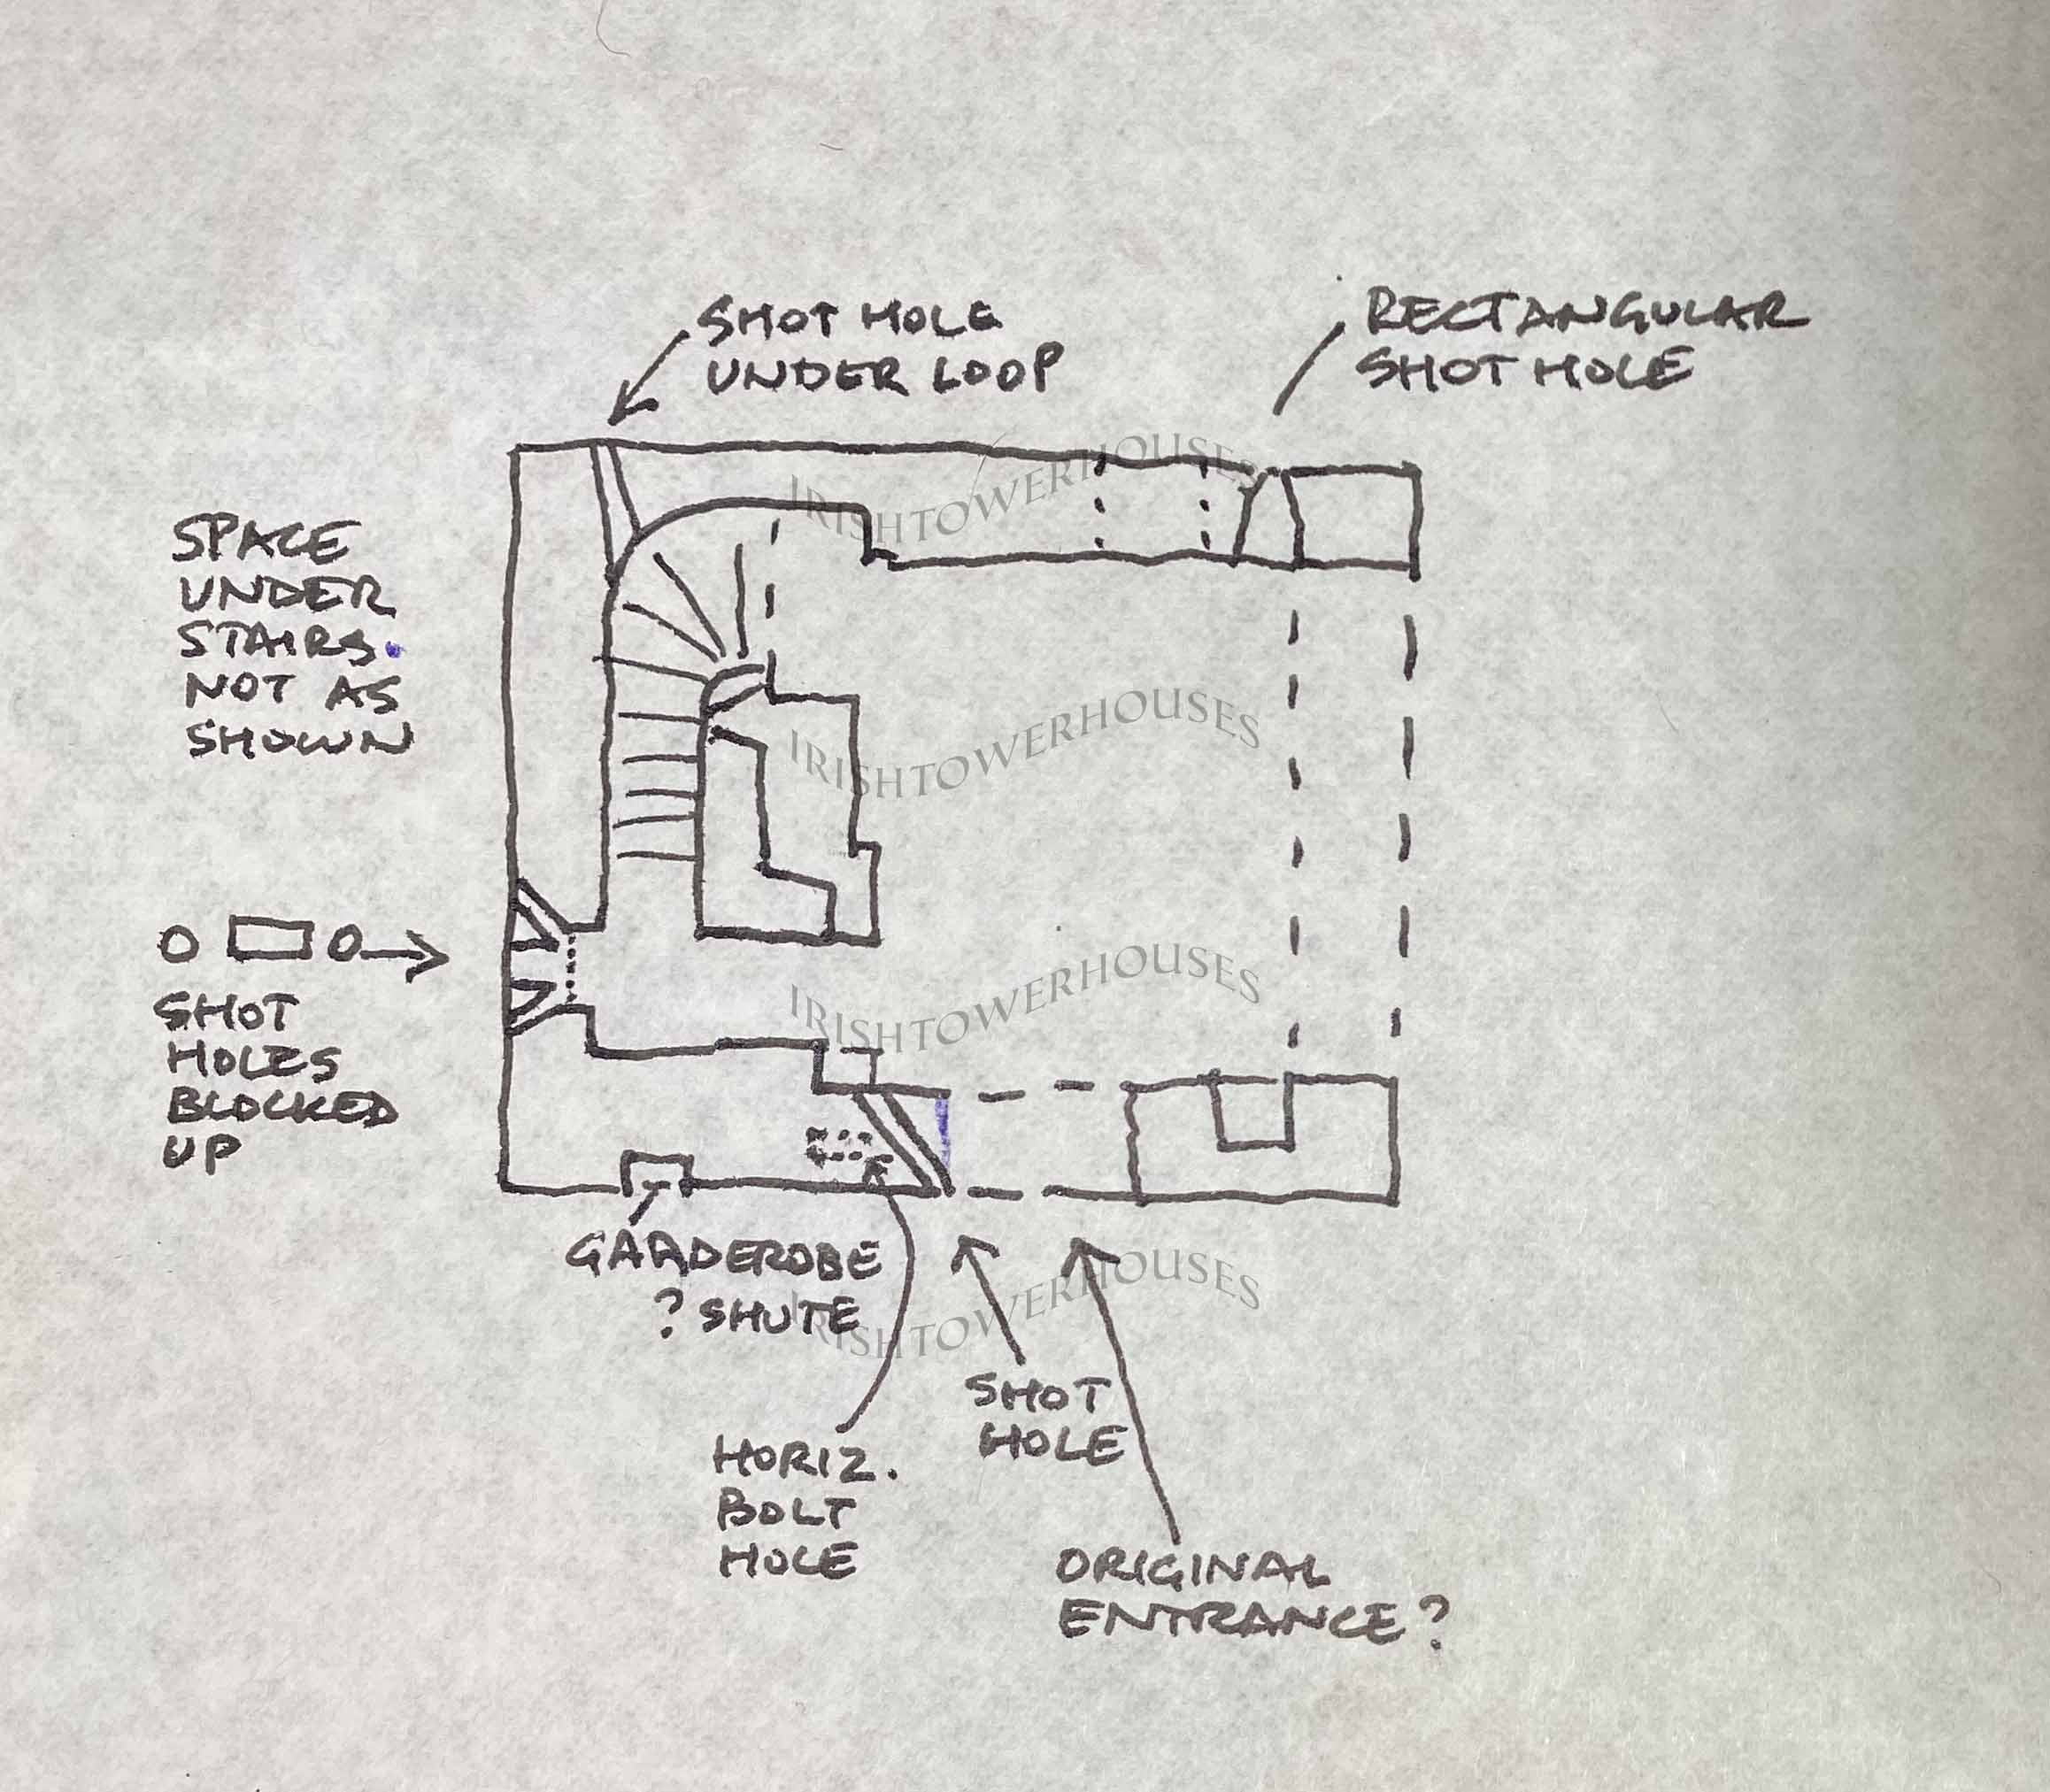 SHOT HOLE
UNDER LOOP
RECTANGULAR
SHOT HOLE
SPACE
UNDER
STAIRS.
NOT AS
SHOWN
SHOT
HOLES
BLOCKED
UP
GARDEROBE
? SHUTE
HORIZ.
BOLT
HOLE
SHOT
HOLE
ORIGINAL
ENTRANCE?
IRISHTOWERHOUSES
IRISHTOWERHOUSES
IRISHTOWERHOUSES
IRISHTOWERHOUSES